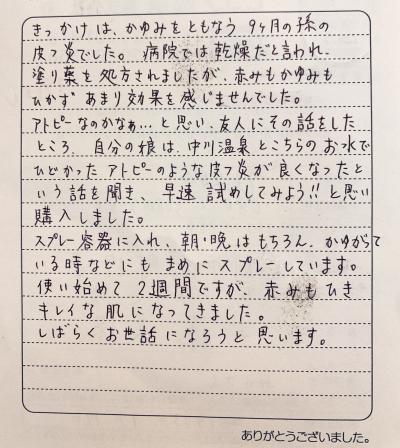 きっかけは、かゆみをともなう 9ヶ月の孫の
皮フ炎でした。 病院では乾燥だと言われ、
塗り薬を処方されましたが、赤みもかゆみも
ひかず あまり効果を感じませんでした。
アトピーなのかなぁ…と思い、友人にその話をした
ところ、自分の娘は、中川温泉とこちらのお水で
ひどかった アトピーのような皮フ炎が良くなったと
いう話を聞き、早速 試めしてみよう!!と思い
購入しました。
スプレー容器に入れ、朝・晩はもちろん、かゆがって
いる時などにも まめに スプレーしています。
使い始めて 2週間ですが、赤みもひき
キレイな肌になってきました。
しばらくお世話になろうと思います。
ありがとうございました。